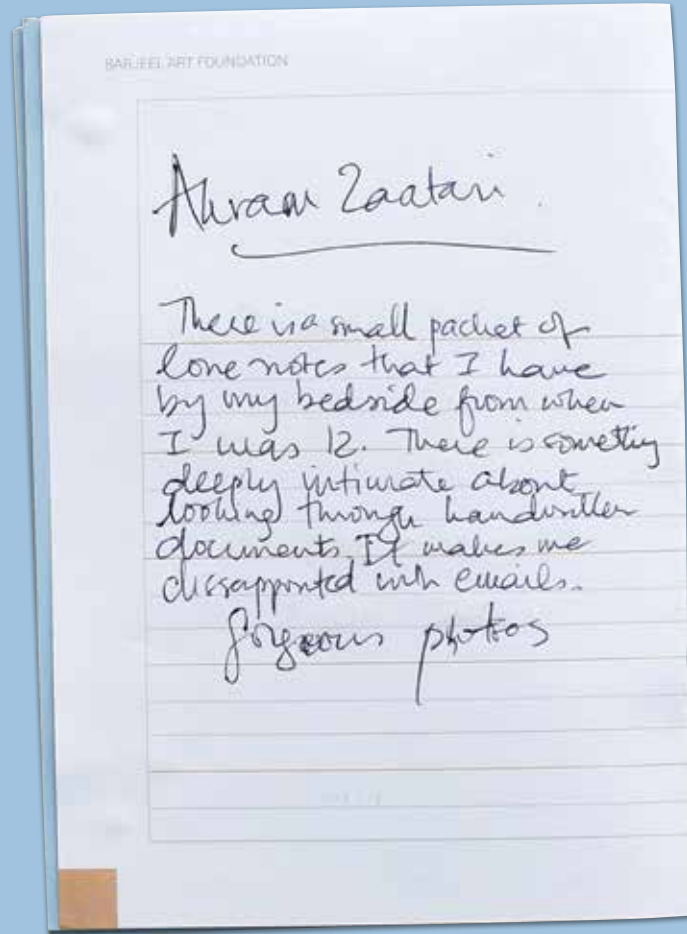 BARJEEL ART FOUNDATION
Akram Zaatari.
There is a small packet of
love notes that I have
by my bedside from when
I was 12. There is something
deeply intimate about
looking through handwritten
documents. It makes me
dissappointed with emails.
gorgeous photos